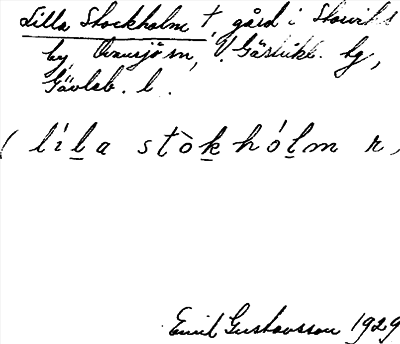 Lilla Stockholm †, gård i Storviks
by, Ovansjö sn, V. Gästrikl. tg,
Gävleb. l.
( lı́la stòkhólm r,
Emil Gustavsson 1929